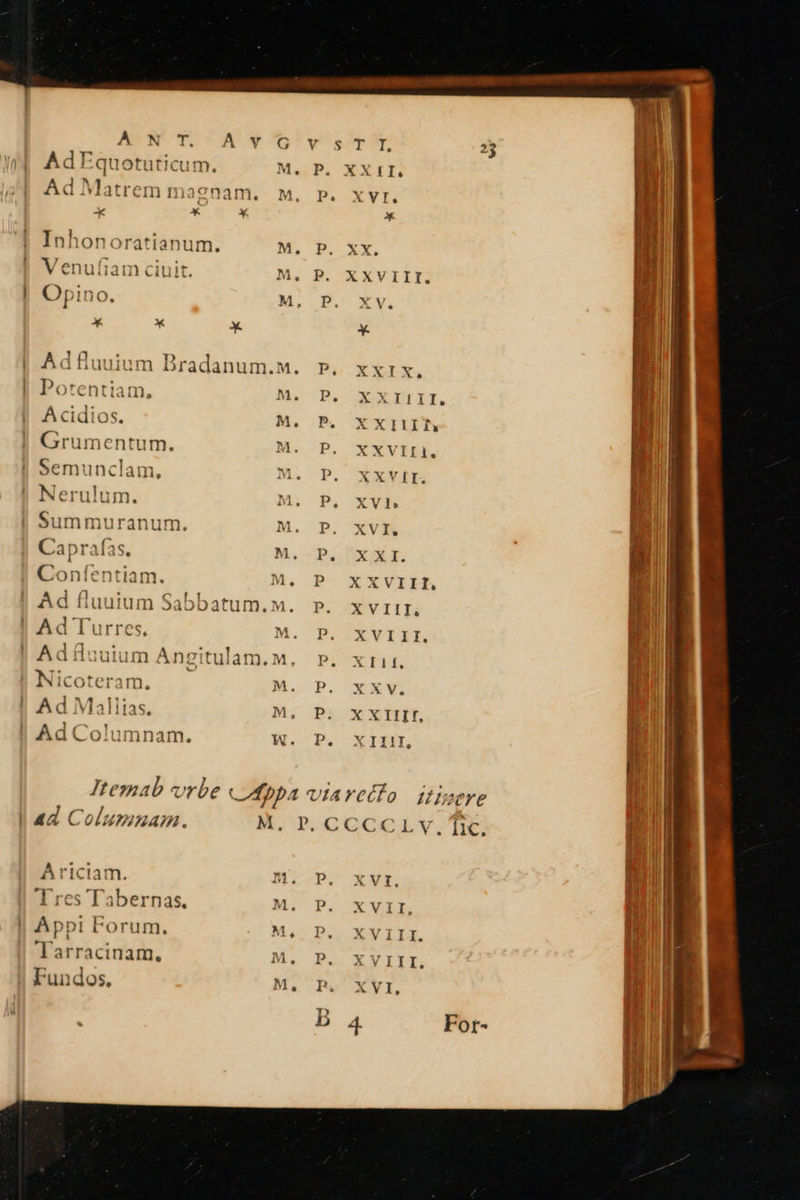 ANT. AVGVSTI. 23
Ad Equotuticum. M. P. XXII.
Ad Matrem magnam. M. P. XVI.
* * * *
Inhonoratianum. M. P. XX.
Venuſiam ciuit. M. P. XXVIII.
Opino. M. P. XV.
* * * *
Ad fluuium Bradanum. M. P. XXIX.
Potentiam. M. P. XXIIII.
Acidios. M. P. XXIIII.
Grumentum. M. P. XXVIII.
Semunclam. M. P. XXVII.
Nerulum. M. P. XVI.
Summuranum. M. P. XVI.
Capraſas. M. P. XXI.
Conſentiam. M. P XXVIII.
Ad fluuium Sabbatum. M. P. XVIII.
Ad Turres. M. P. XVIII.
Ad fluuium Angitulam. M. P. XIII.
Nicoteram. M. P. XXV.
Ad Mallias. M. P. XXIIII.
Ad Columnam. M. P. XIIII.
Item ab vrbe Appa via recto itinere
ad Columnam. M. P. CCCCLV. ſic.
Ariciam. M. P. XVI.
Tres Tabernas. M. P. XVII.
Appi Forum. M. P. XVIII.
Tarracinam. M. P. XVIII.
Fundos. M. P. XVI.
B 4 For-